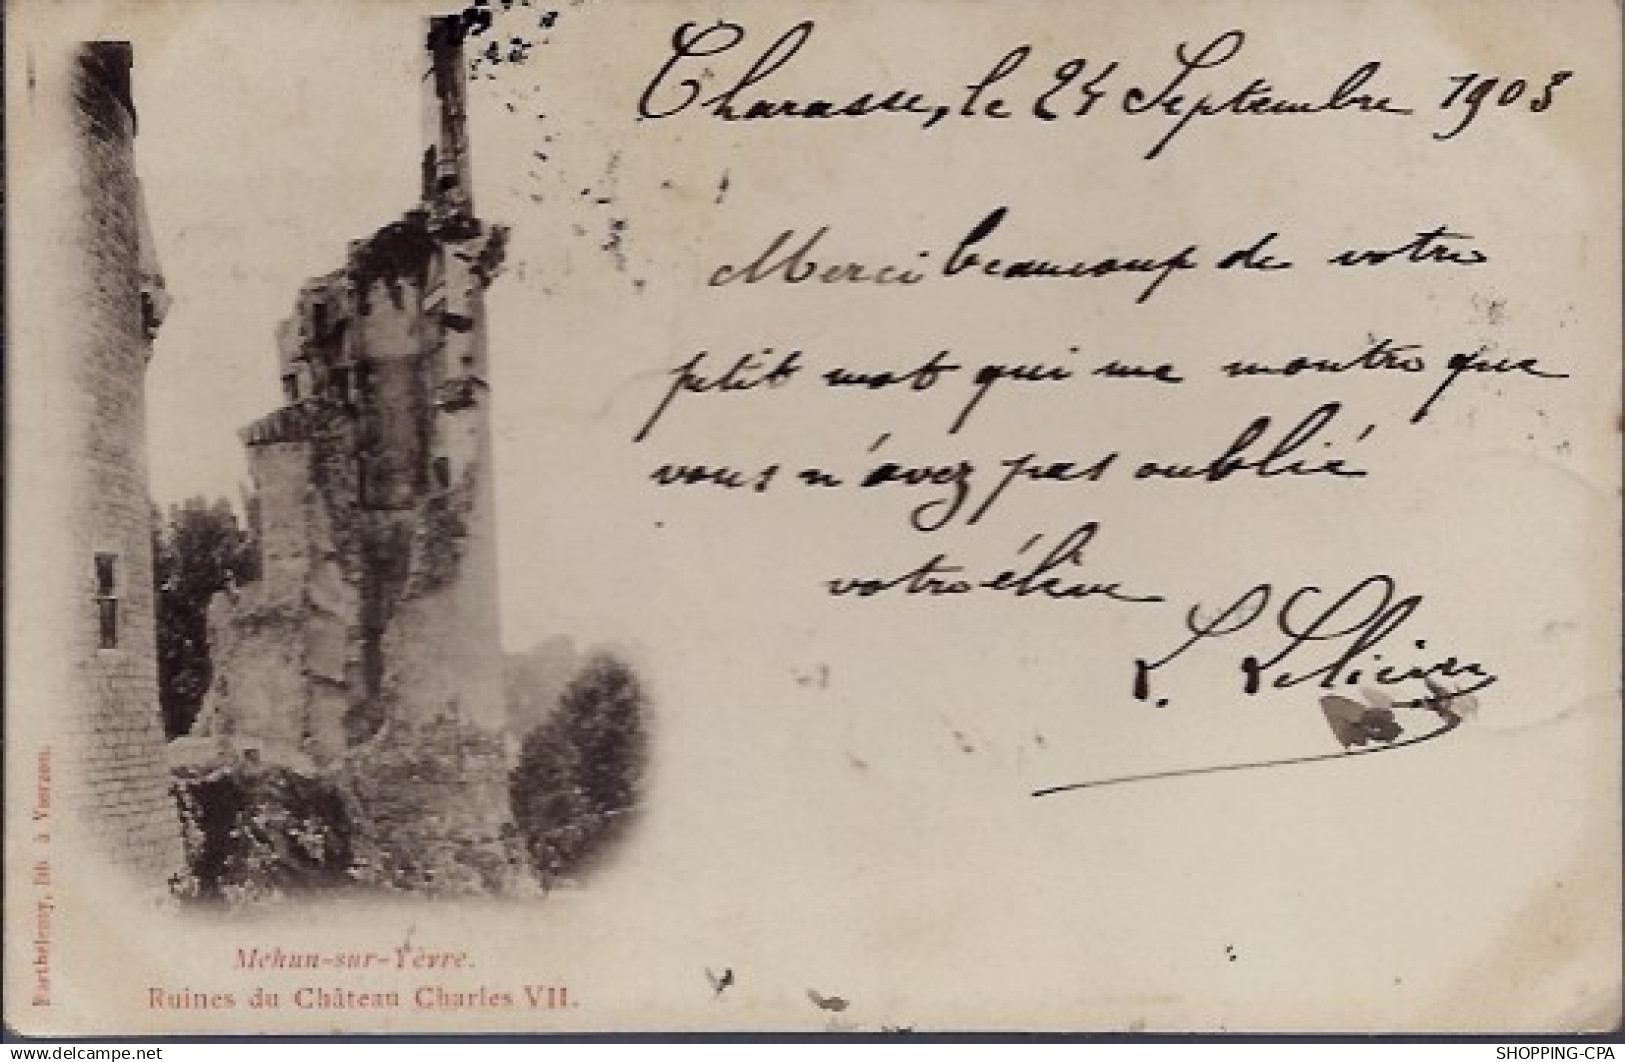 Charasse, le 24 Septembre 1903
Merci beaucoup de votre
petit mot qui me montre que
vous n'avez pas oublié
votre élève
L.
Mehun-sur-Yèvre.
Ruines du Château Charles VII.
Barthelemy, lith. à Vierzon.
delcampe.net
SHOPPING-CPA